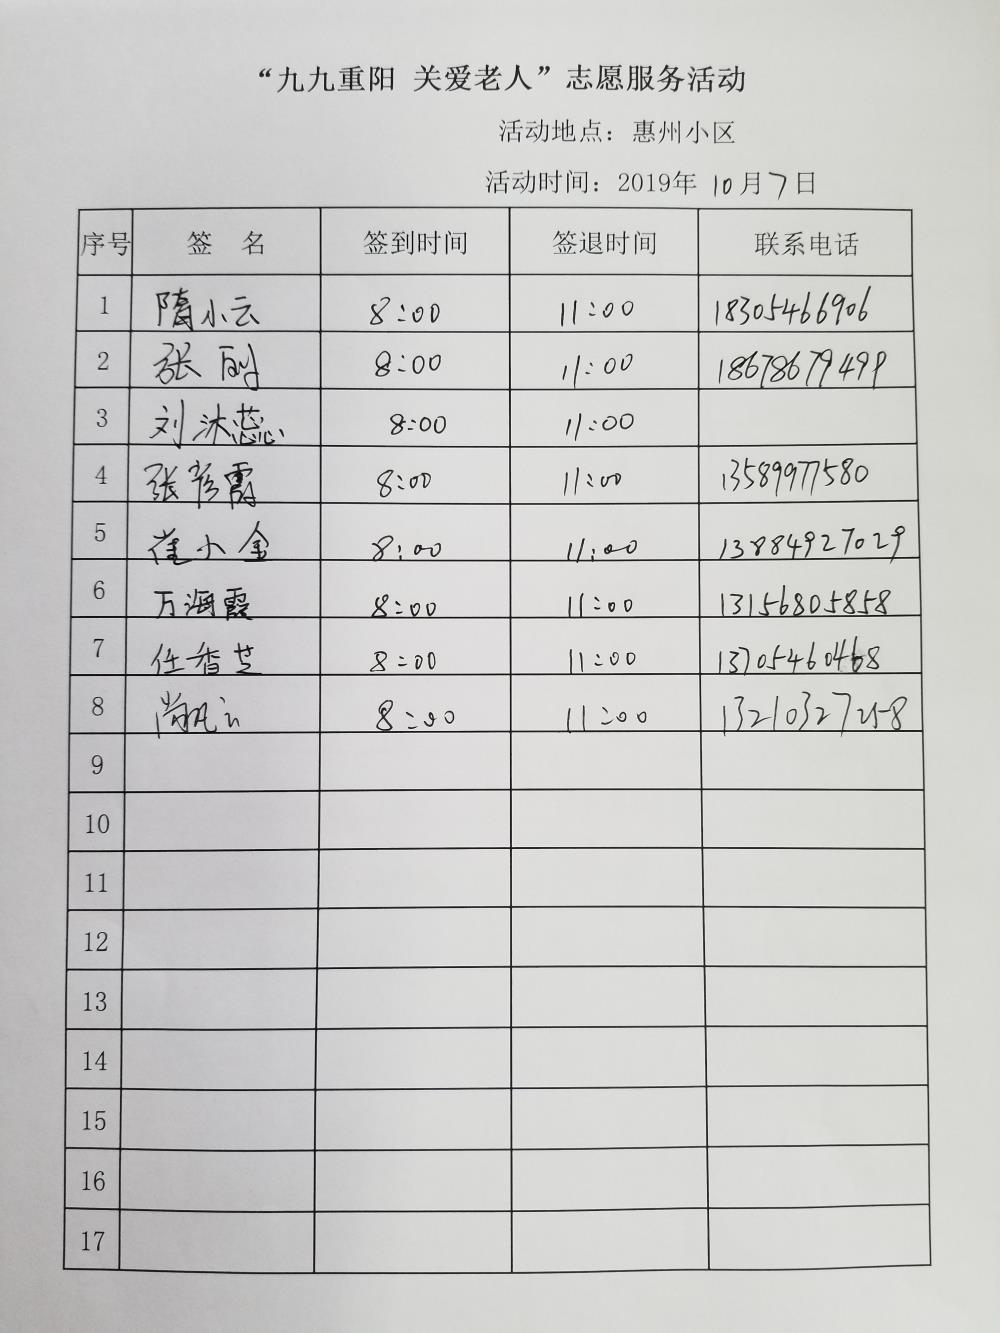 “九九重阳 关爱老人”志愿服务活动
活动地点：惠州小区
活动时间：2019年 10月7日
序号 签 名 签到时间 签退时间 联系电话
1 隋小云 8:00 11:00 18305466906
2 张刚 8:00 11:00 18678679499
3 刘沐蕊 8:00 11:00
4 张彦霞 8:00 11:00 13589977580
5 崔小金 8:00 11:00 13884927029
6 万海霞 8:00 11:00 13156805858
7 任香芝 8:00 11:00 13705460468
8 8:00 11:00 13210327258
9
10
11
12
13
14
15
16
17